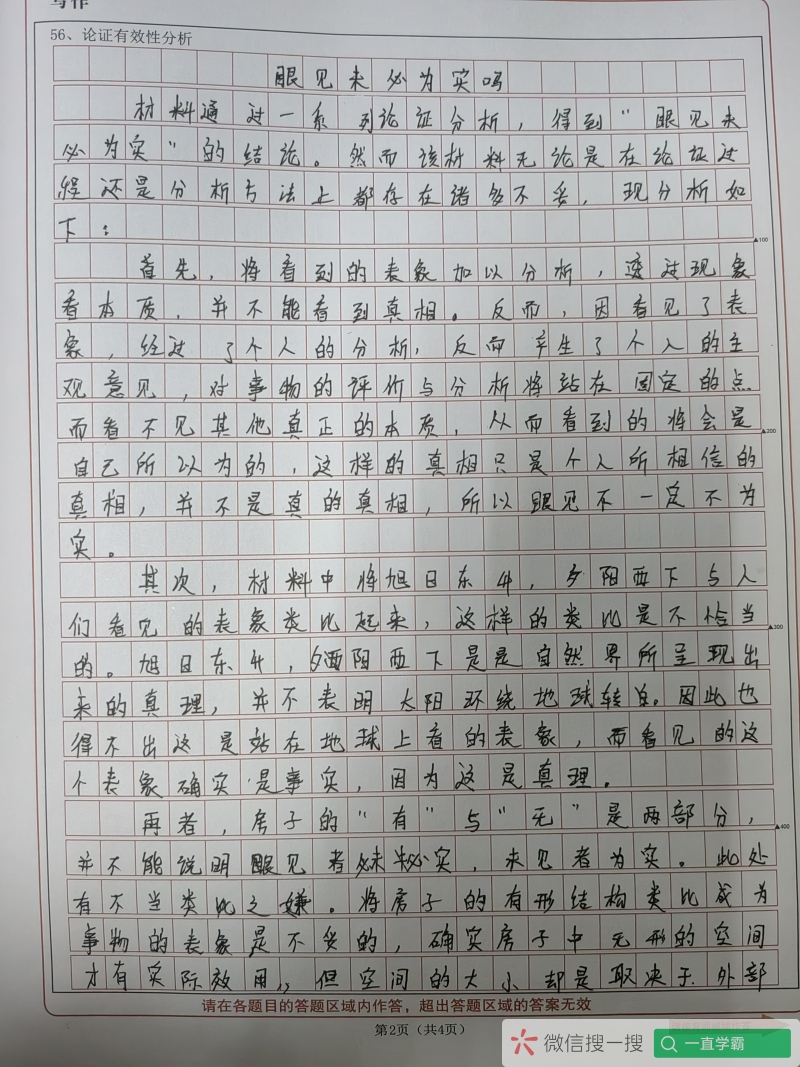 写作
56、论证有效性分析
眼见未必为实吗
材料通过一系列论证分析，得到“眼见未
必为实”的结论。然而该材料无论是在论证过
程还是分析方法上都存在诸多不妥，现分析如
下：
▲100
首先，将看到的表象加以分析，透过现象
看本质，并不能看到真相。反而，因看见了表
象，经过了个人的分析，反而产生了个人的主
观意见，对事物的评价与分析将站在固定的点
而看不见其他真正的本质，从而看到的将会是
▲200
自己所以为的，这样的真相只是个人所相信的
真相，并不是真的真相，所以眼见不一定不为
实。
其次，材料中将旭日东升，夕阳西下与人
们看见的表象类比起来，这样的类比是不恰当
▲300
的。旭日东升，夕阳西下是是自然界所呈现出
来的真理，并不表明太阳环绕地球转白。因此也
得不出这是站在地球上看的表象，而看见的这
个表象确实是事实，因为这是真理。
再者，房子的“有”与“无”是两部分，
▲400
并不能说明眼见者未必实，未见者为实。此处
有不当类比之嫌。将房子的有形结构类比成为
事物的表象是不妥的，确实房子中无形的空间
才有实际效用，但空间的大小却是取决于外部
请在各题目的答题区域内作答，超出答题区域的答案无效
第2页（共4页）
微信搜一搜
一直学霸